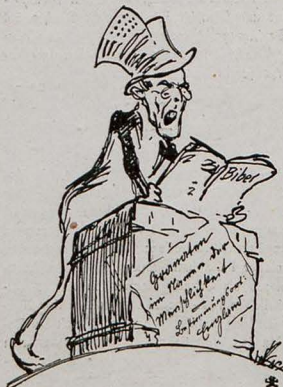 Bibel
2
Granaten
im Namen der
Menschlichkeit
Bestimmungsort:
England